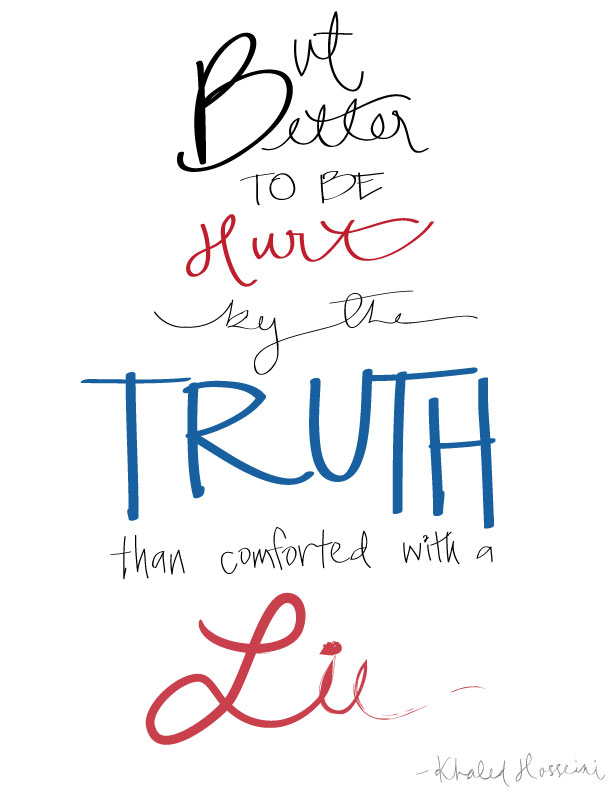 But
Better
TO BE
Hurt
by the
TRUTH
than comforted with a
Lie
- Khaled Hosseini